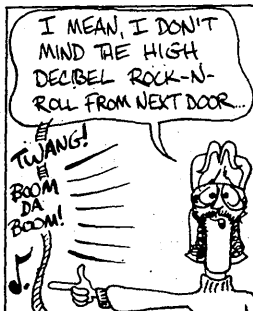 I MEAN, I DON'T
MIND THE HIGH
DECIBEL ROCK-N-
ROLL FROM NEXT DOOR...
TWANG!
BOOM
DA
BOOM!